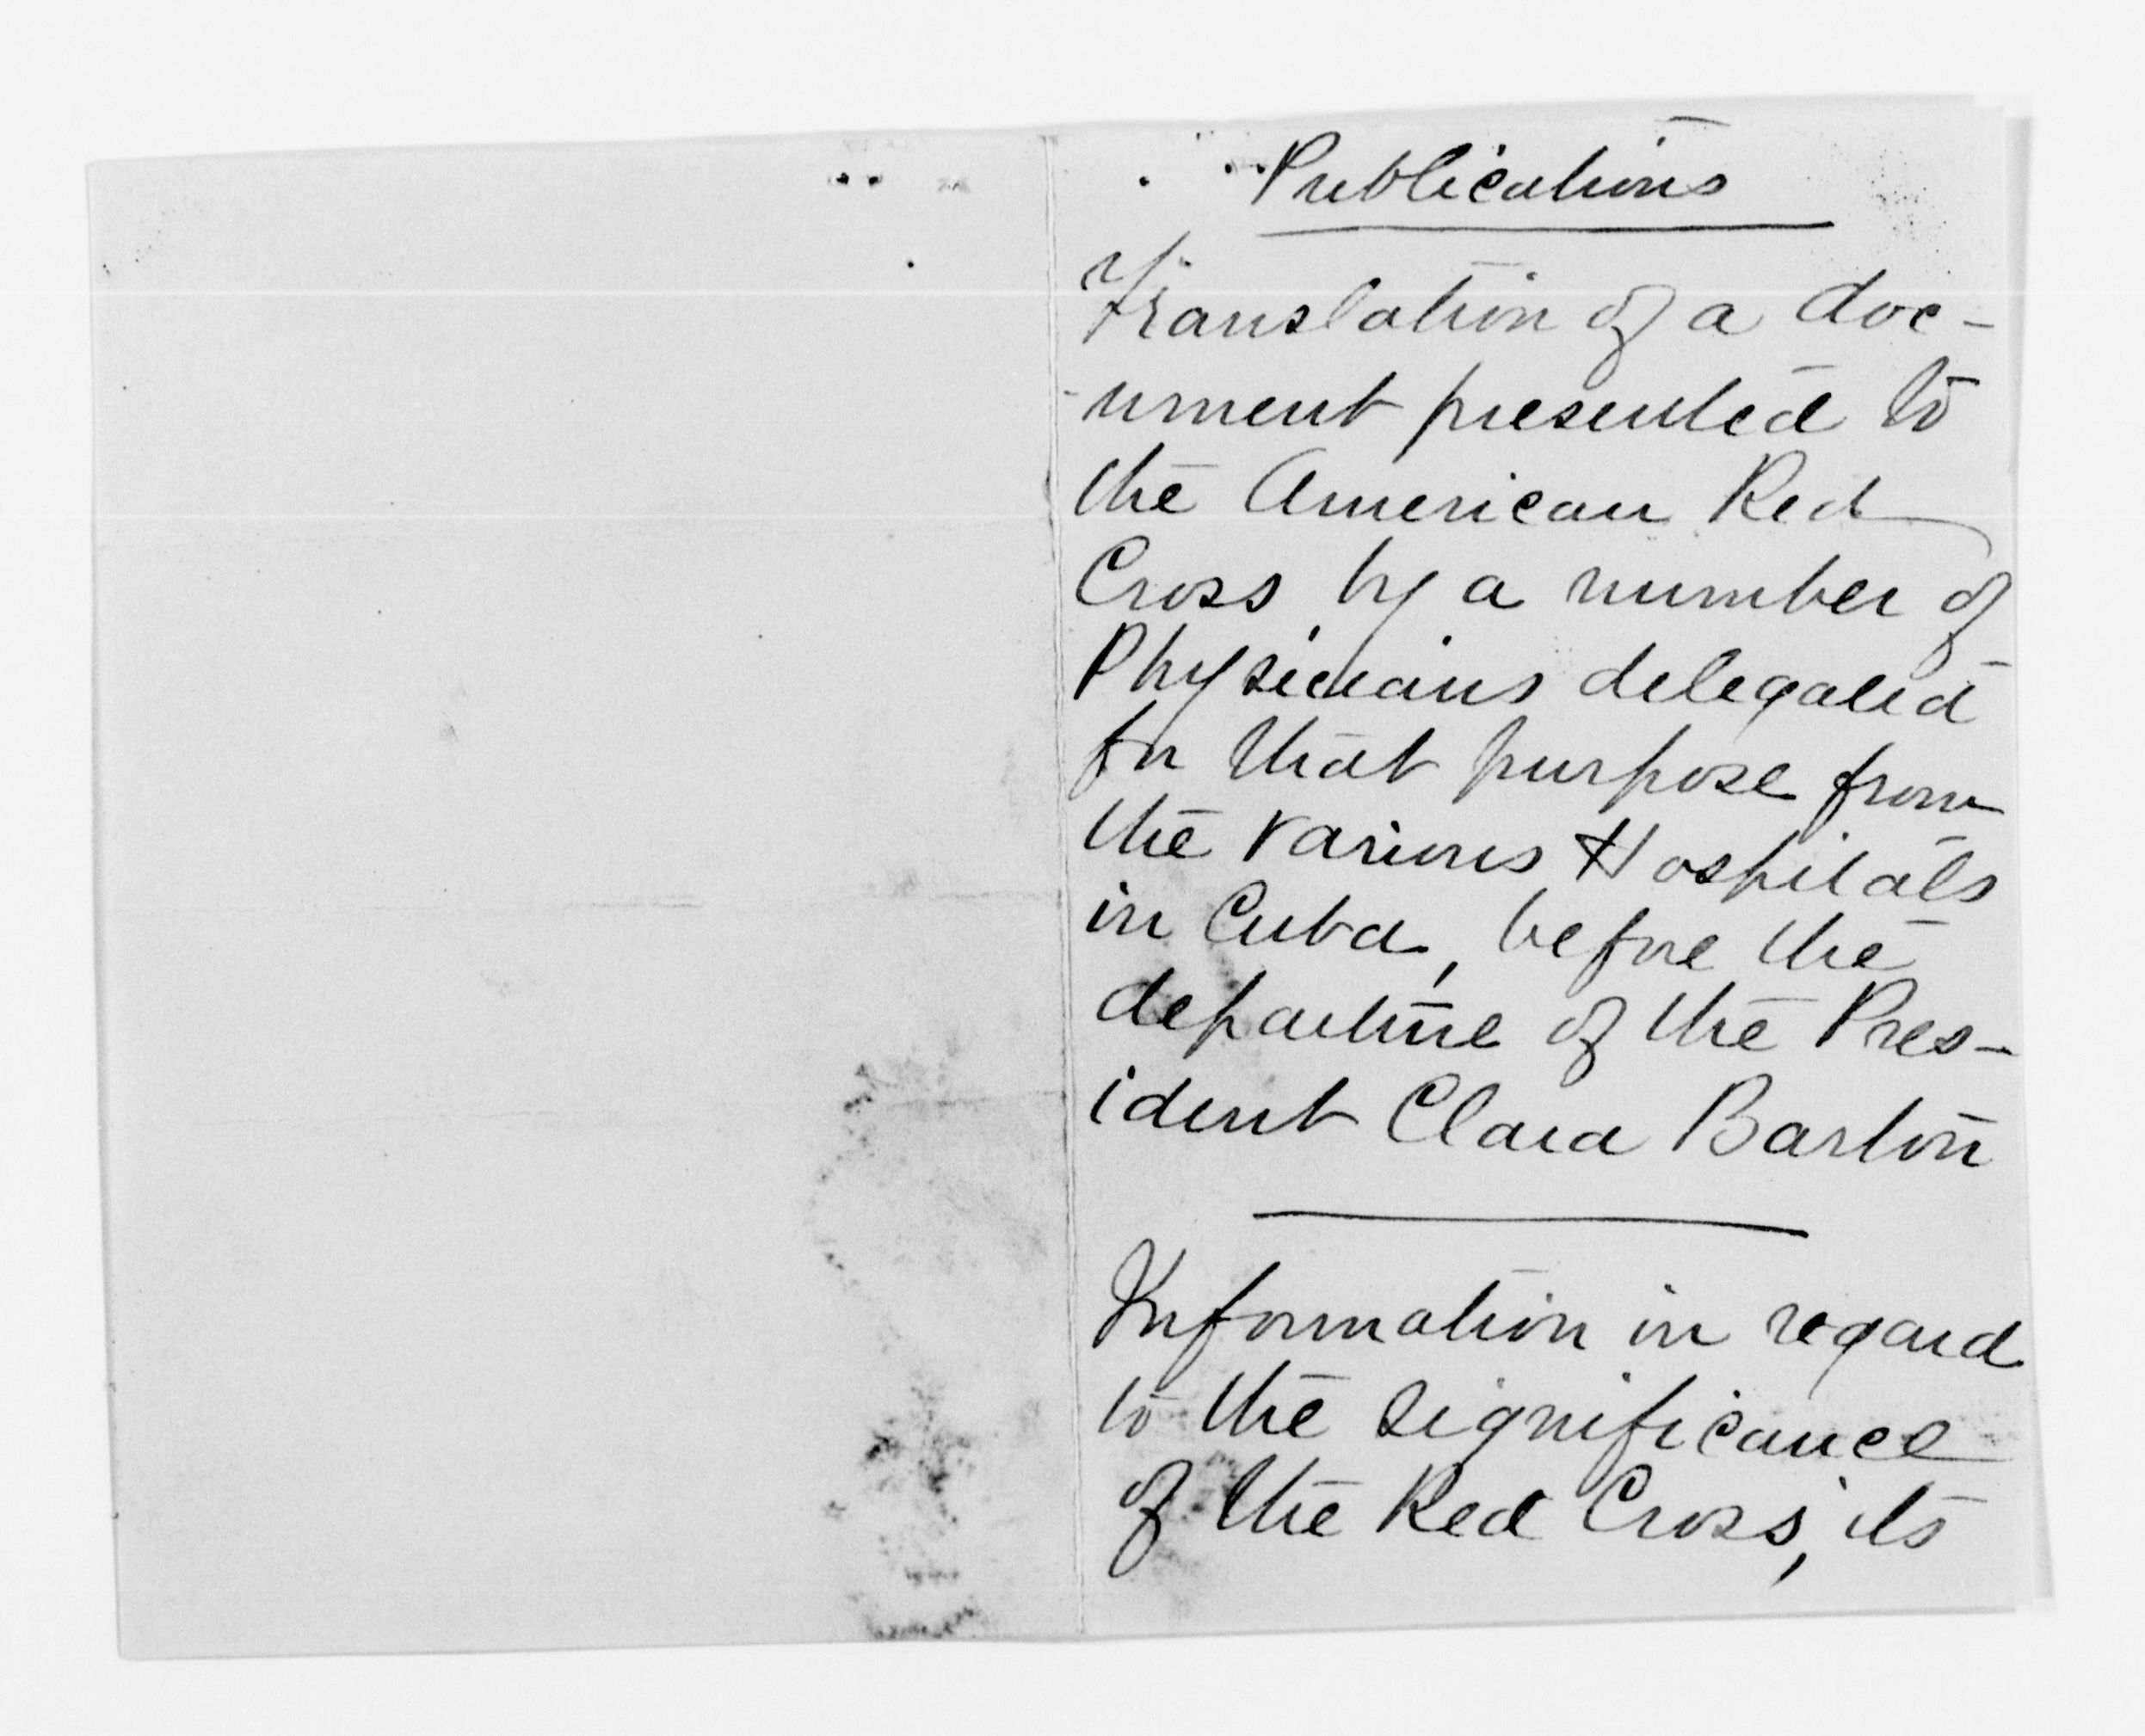 Publications
Translation of a doc-
-ument presented to
the American Red
Cross by a number of
Physicians delegated
for that purpose from
the various Hospitals
in Cuba, before the
departure of the Pres-
ident Clara Barton
Information in regard
to the significance
of the Red Cross, its